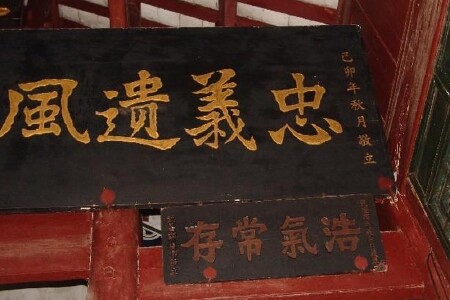 己卯年秋月敬立
忠義遺風
浩氣常存